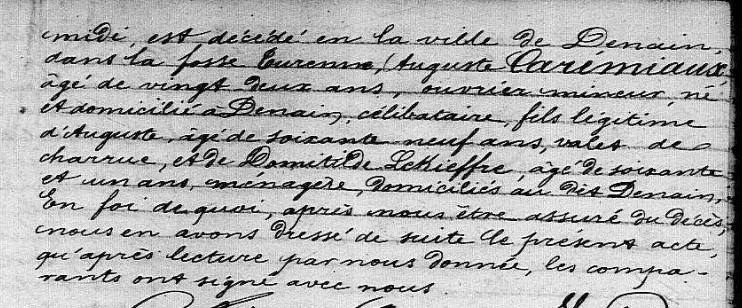 midi, est décédé en la ville de Denain,
dans la fosse Turenne, Auguste Carémiaux,
âgé de vingt deux ans, ouvrier mineur, né
et domicilié à Denain, célibataire, fils légitime
d'Auguste, âgé de soixante neuf ans, valet de
charrue, et de Domitilde Lekieffre, âgé de soixante
et un ans, ménagère, domiciliés au dit Denain,
En foi de quoi, après nous être assuré du décès,
nous en avons dressé de suite le présent acte,
qu'après lecture par nous donnée, les compa-
rants ont signé avec nous.